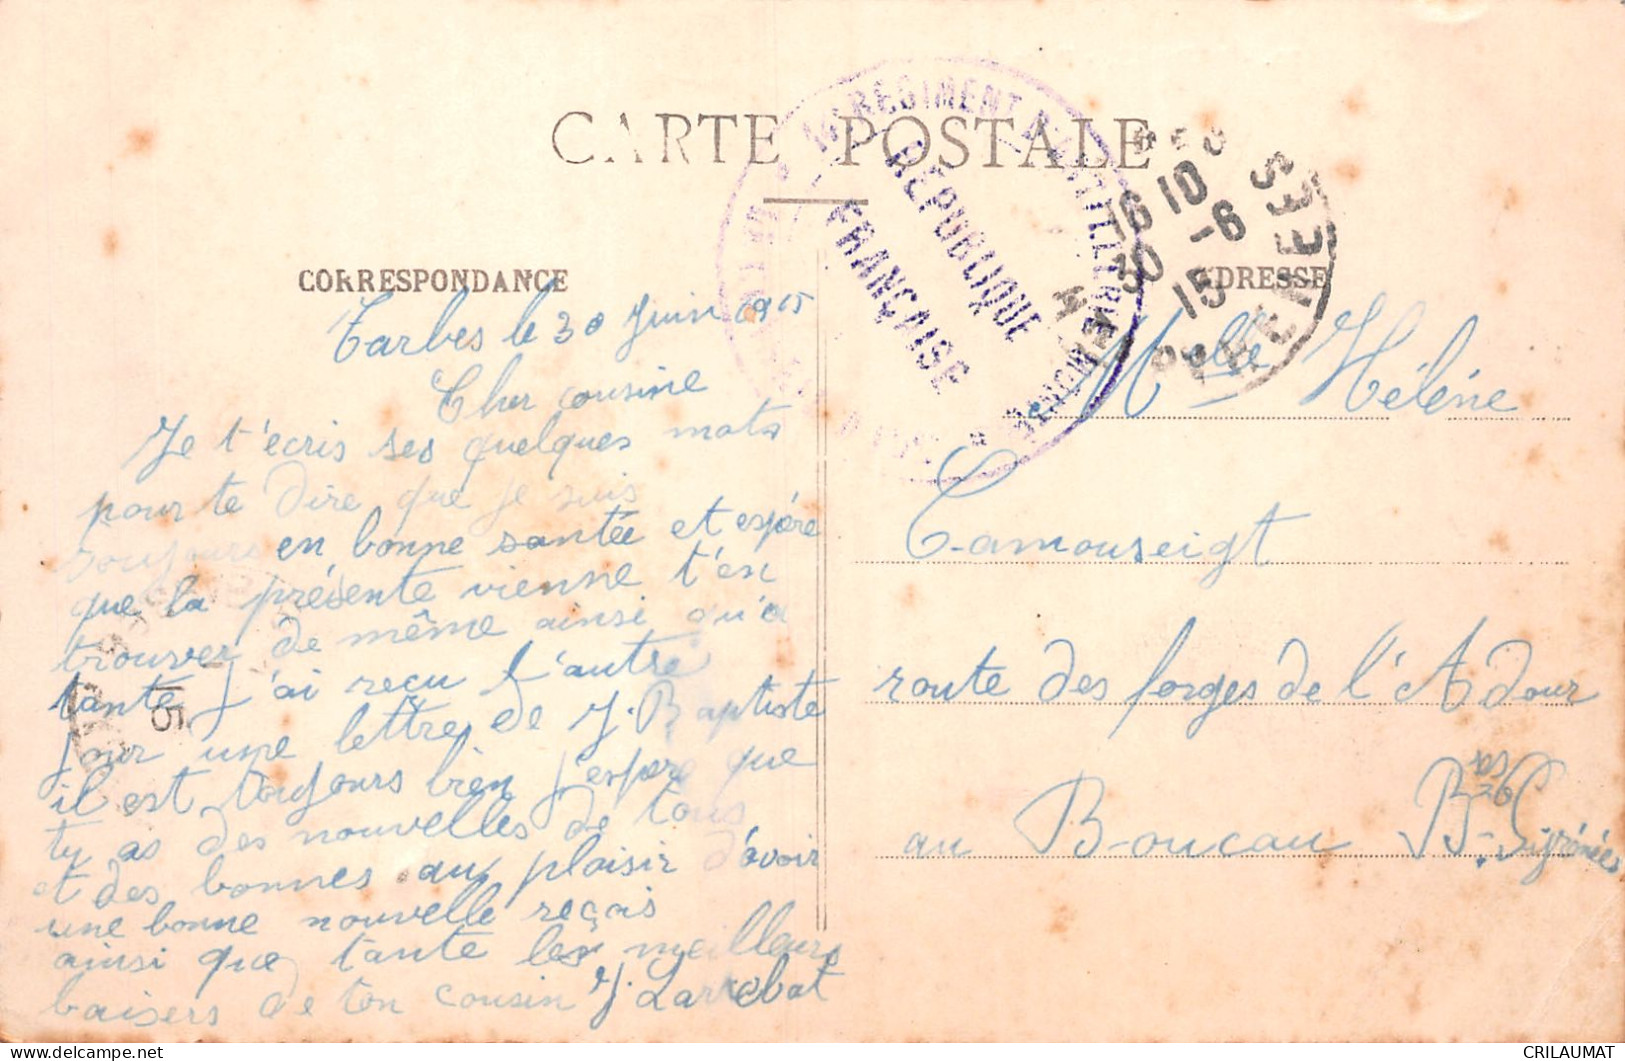 CARTE POSTALE
RÉPUBLIQUE
FRANÇAISE
16 10
30 -6
15
PYRENEES
CORRESPONDANCE
ADRESSE
Tarbes le 30 Juin 1915
Cher cousine
Je t'écris ses quelques mots
pour te dire que je suis
toujours en bonne santée et espére
que la présente vienne t'en
trouver de même ainsi qu'a
tante j'ai reçu l'autre
jour une lettre de J. Baptiste
il est toujours bien j'espere que
ty as des nouvelles de tous
et des bonnes au plaisir d'avoir
une bonne nouvelle reçois
ainsi que tante les meilleurs
baisers de ton cousin J.
Melle Hélène
Camouseigt
route des forges de l'Adour
au Boucau Bses Pyrénées
15
CRILAUMAT